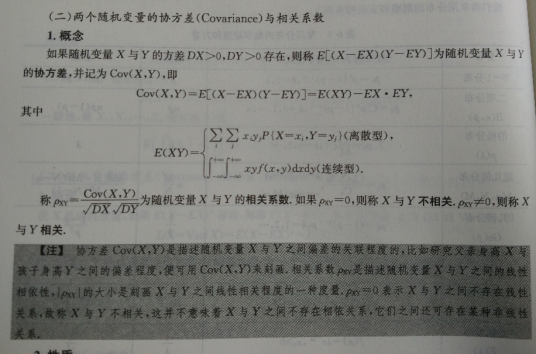 (二)两个随机变量的协方差(Covariance)与相关系数
1. 概念
如果随机变量 X 与 Y 的方差 DX>0,DY>0 存在,则称 E[(X-EX)(Y-EY)]为随机变量 X 与 Y
的协方差,并记为 Cov(X,Y),即
Cov(X,Y)=E[(X-EX)(Y-EY)]=E(XY)-EX·EY,
其中
E(XY)={∑_i ∑_j x_i y_j P{X=x_i,Y=y_j}(离散型),
∫_{-∞}^{+∞}∫_{-∞}^{+∞} xyf(x,y)dxdy(连续型).
称 ρ_XY=Cov(X,Y)/(√DX √DY)为随机变量 X 与 Y 的相关系数. 如果 ρ_XY=0,则称 X 与 Y 不相关. ρ_XY≠0,则称 X
与 Y 相关.
【注】 协方差 Cov(X,Y)是描述随机变量 X 与 Y 之间偏差的关联程度的,比如研究父亲身高 X 与
孩子身高 Y 之间的偏差程度,便可用 Cov(X,Y)来刻画. 相关系数 ρ_XY是描述随机变量 X 与 Y 之间的线性
相依性,|ρ_XY|的大小是刻画 X 与 Y 之间线性相关程度的一种度量. ρ_XY=0 表示 X 与 Y 之间不存在线性
关系,故称 X 与 Y 不相关,这并不意味着 X 与 Y 之间不存在相依关系,它们之间还可存在某种非线性
关系.